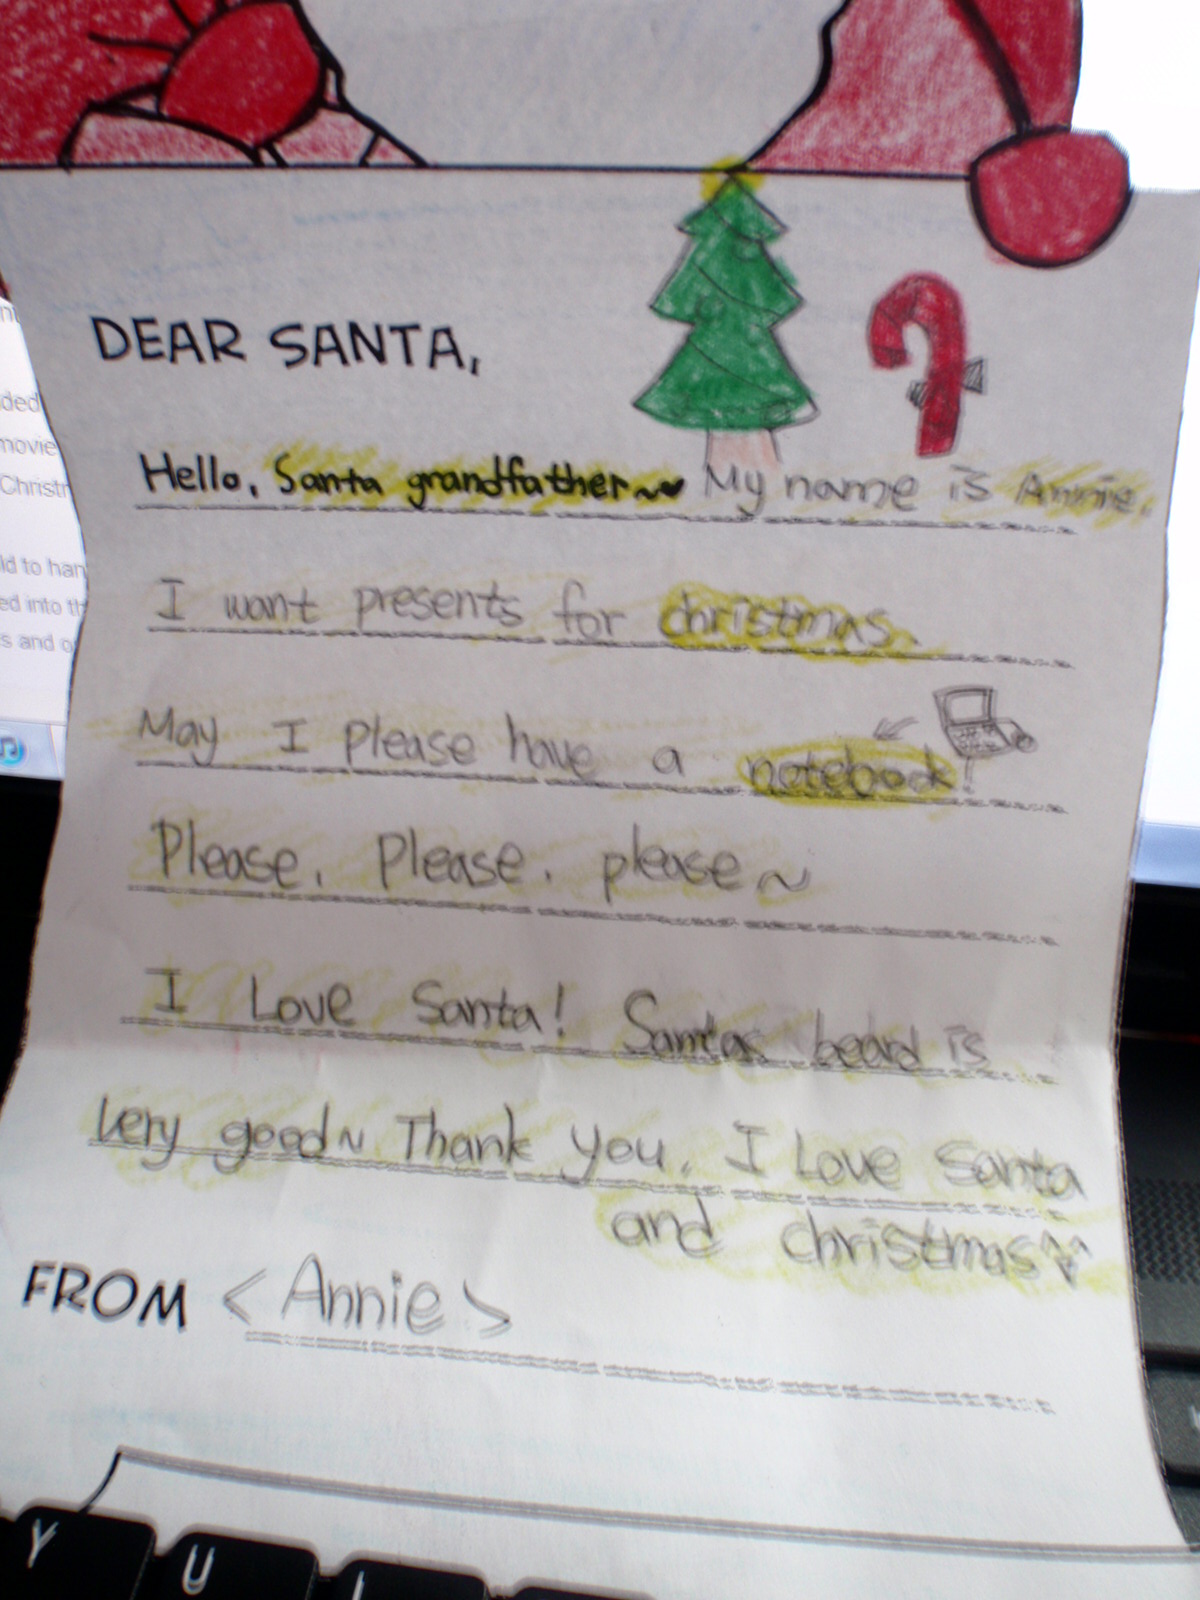 DEAR SANTA,
Hello, Santa grandfather~♥ My name is Annie.
I want presents for christmas.
May I please have a notebook!
Please, Please, please~
I Love Santa! Santas beard is
very good~ Thank you, I Love Santa
and christmas
FROM <Annie>
ded
movie
Christ
ld to han
ed into th
s and o
Y U